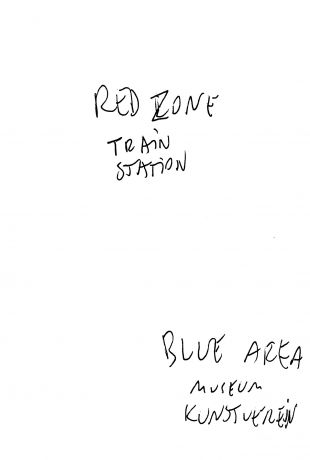 RED ZONE
TRAIN
STATION
BLUE AREA
MUSEUM
KUNSTVEREIN